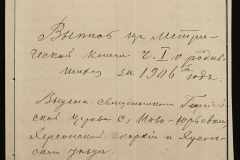 Выпись из Метри-
ческой книги Ч. I. о родив-
шихся за 1906й годъ.
Выдана священникомъ Георгіев-
ской церкви С. Ново-Юрьевки,
Херсонской епархіи и Херсон-
скаго уѣзда